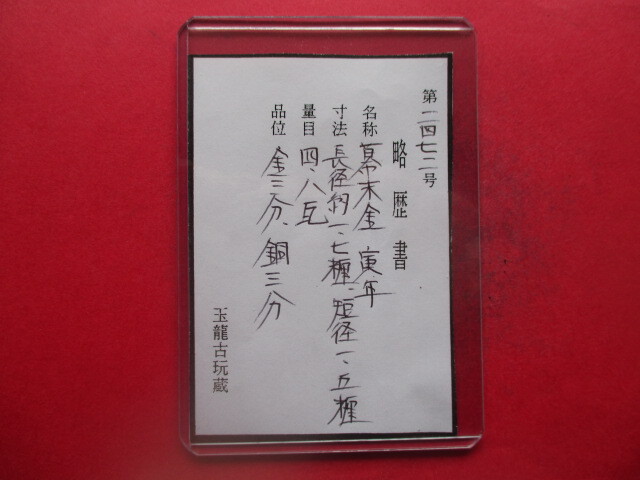 第二四七二号
略歴書
名称 幕末金 寅年
寸法 長径約一、七糎、短径一、五糎
量目 四、八瓦
品位 金三分、銅三分
玉龍古玩蔵